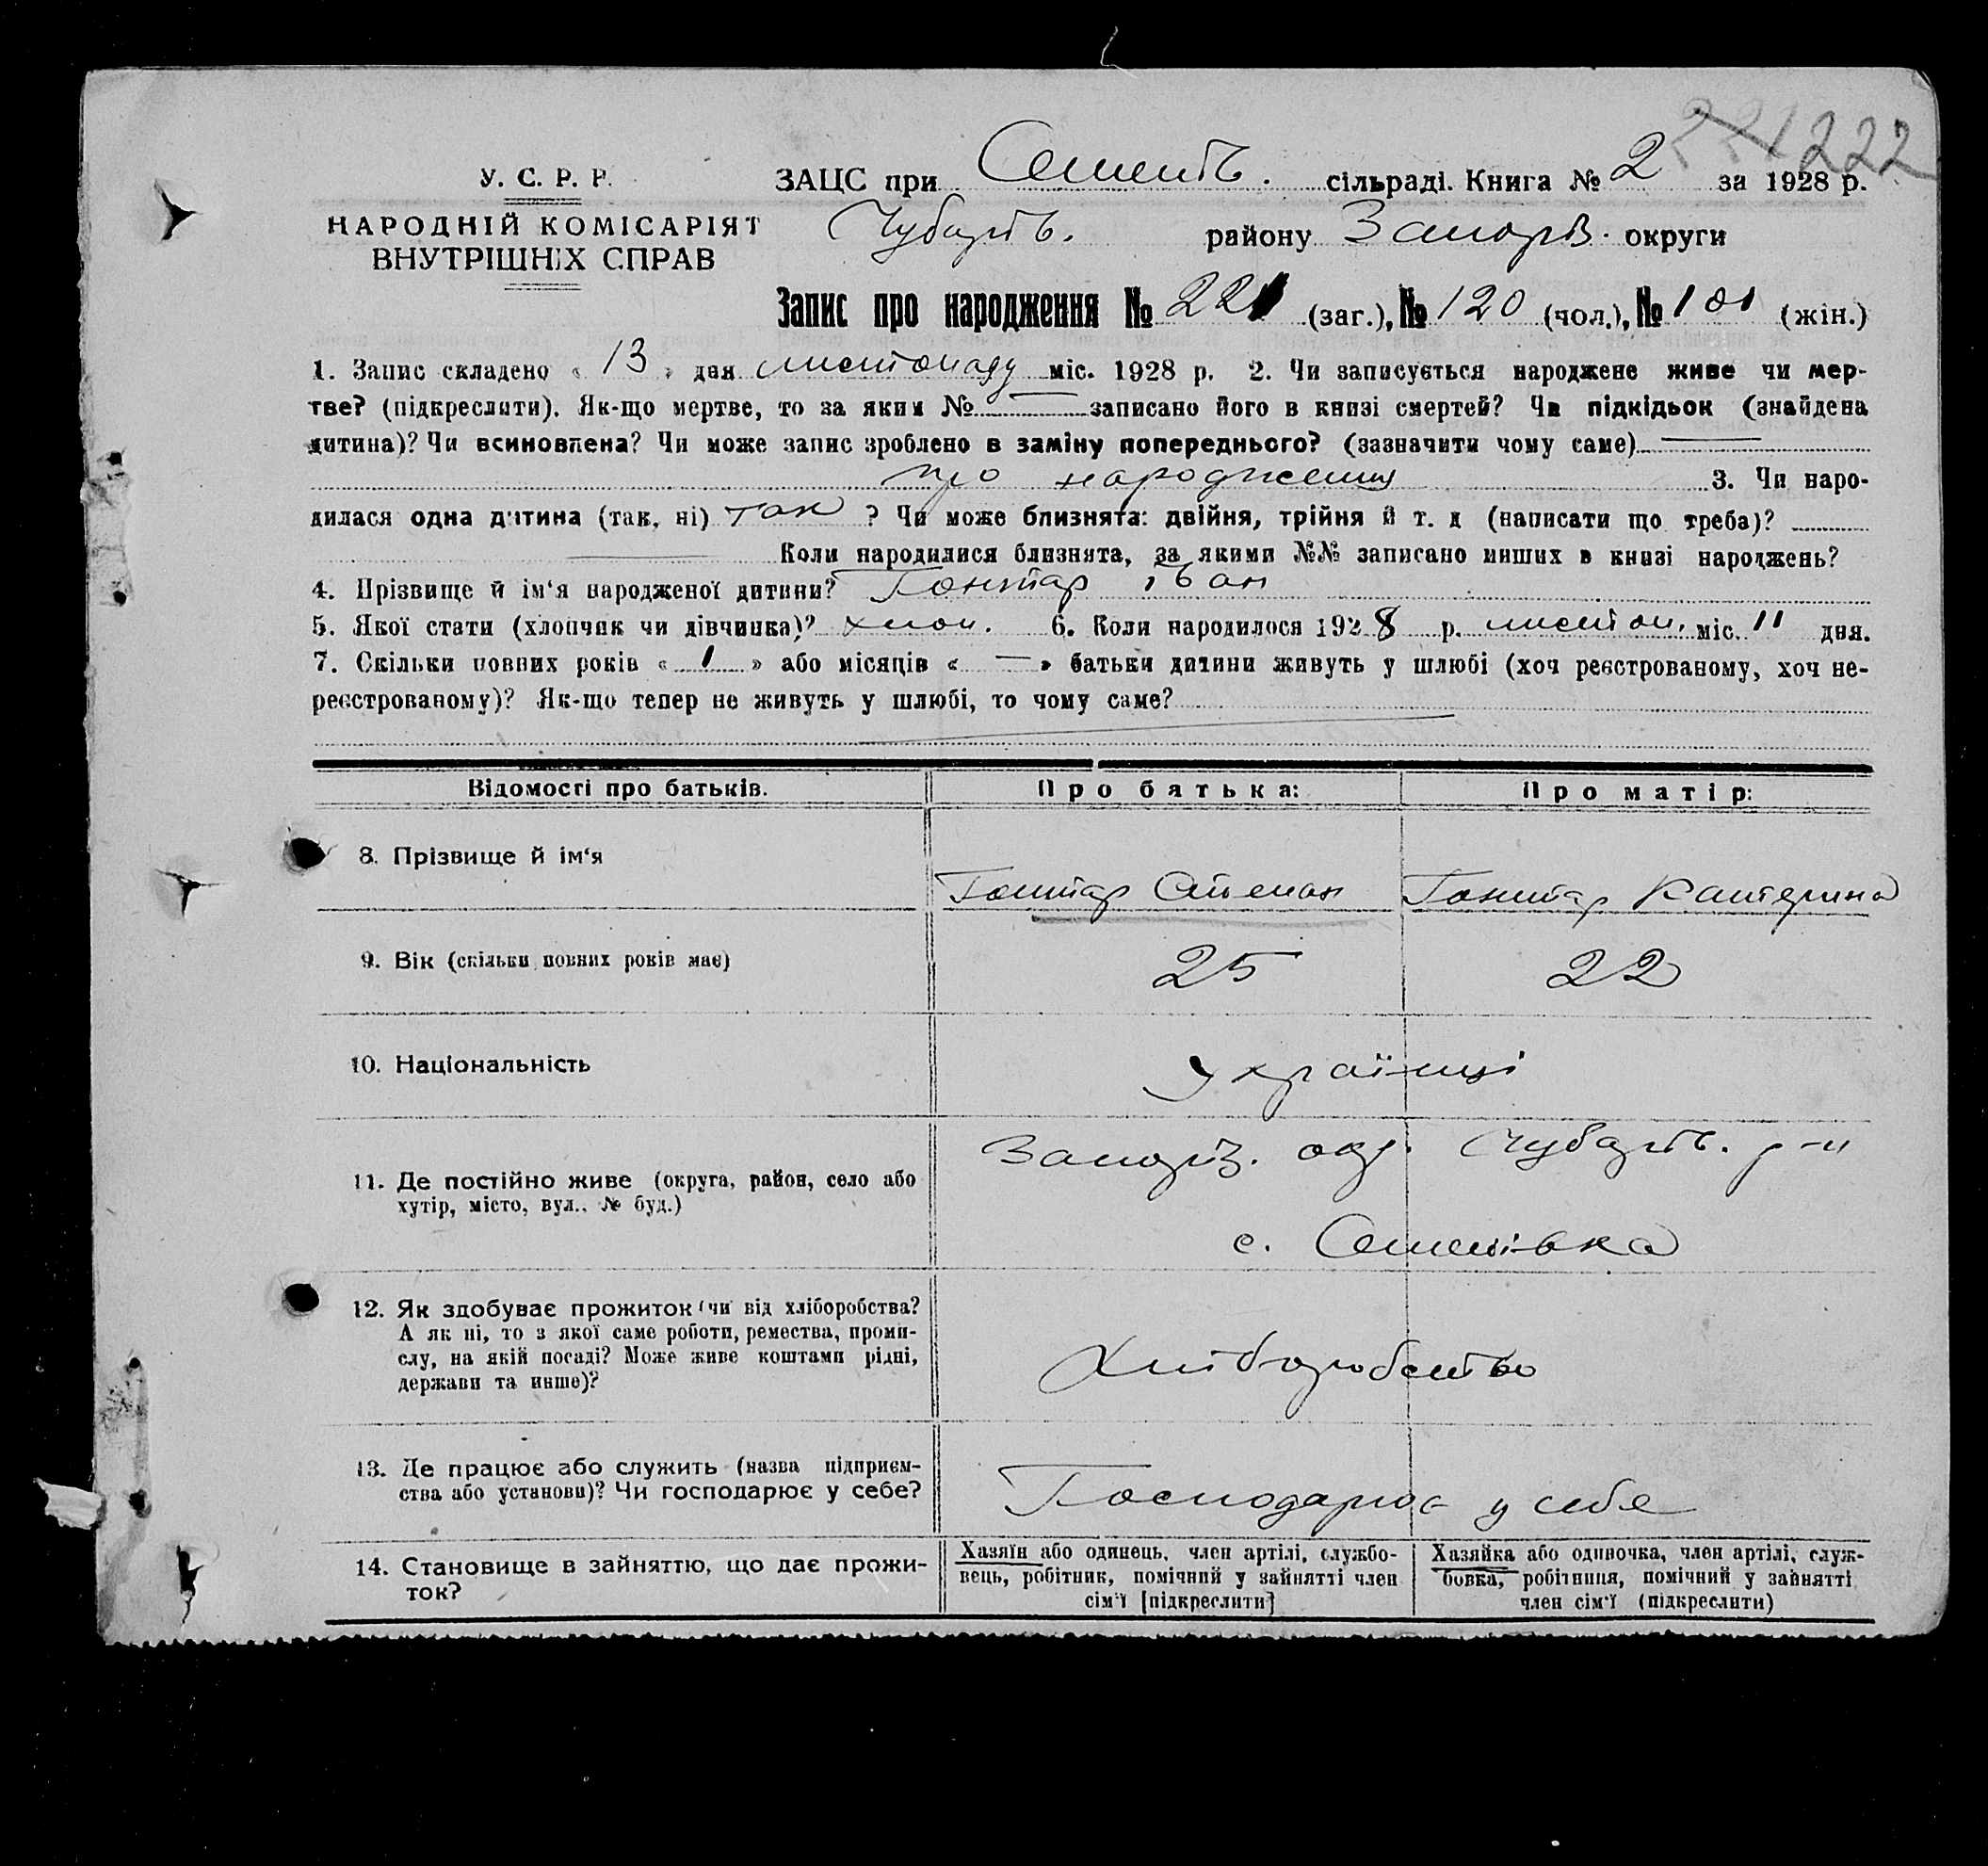 221 222
У. С. Р. Р.
НАРОДНІЙ КОМІСАРІЯТ
ВНУТРІШНІХ СПРАВ
ЗАЦС при Семенів. сільраді. Книга № 2 за 1928 р.
Чубарів. району Запоріз. округи
Запис про народження № 221 (заг.), № 120 (чол.), № 101 (жін.)
1. Запис складено « 13 » дня листопаду міс. 1928 р. 2. Чи записується народжене живе чи мер-
тве? (підкреслити). Як-що мертве, то за яким № — записано його в книзі смертей? Чи підкідьок (знайдена
дитина)? Чи всиновлена? Чи може запис зроблено в заміну попереднього? (зазначити чому саме) —
про народження 3. Чи наро-
дилася одна дитина (так, ні) так ? Чи може близнята: двійня, трійня й т. д (написати що треба)?
— Коли народилися близнята, за якими №№ записано инших в книзі народжень?
4. Прізвище й ім‘я народженої дитини? Гонтар Іван
5. Якої стати (хлопчик чи дівчинка)? хлоп. 6. Коли народилося 1928 р. листоп. міс. 11 дня.
7. Скільки повних років « 1 » або місяців « — » батьки дитини живуть у шлюбі (хоч реєстрованому, хоч не-
реєстрованому)? Як-що тепер не живуть у шлюбі, то чому саме?
Відомості про батьків. Про батька: Про матір:
8. Прізвище й ім‘я Гонтар Степан Гонтар Катерина
9. Вік (скільки повних років має) 25 22
10. Національність Українці
11. Де постійно живе (округа, район, село або
хутір, місто, вул., № буд.)
Запоріз. окр. Чубарів. р-н
с. Семенівка
12. Як здобуває прожиток (чи від хліборобства?
А як ні, то з якої саме роботи, ремества, проми-
слу, на якій посаді? Може живе коштами рідні,
держави та инше)?
Хліборобство
13. Де працює або служить (назва підприєм-
ства або установи)? Чи господарює у себе?
Господарює у себе
14. Становище в зайняттю, що дає прожи-
ток?
Хазяїн або одинець, член артілі, службо-
вець, робітник, помічний у зайнятті член
сім‘ї [підкреслити]
Хазяйка або одиночка, член артілі, служ-
бовка, робітниця, помічний у зайнятті
член сім‘ї (підкреслити)